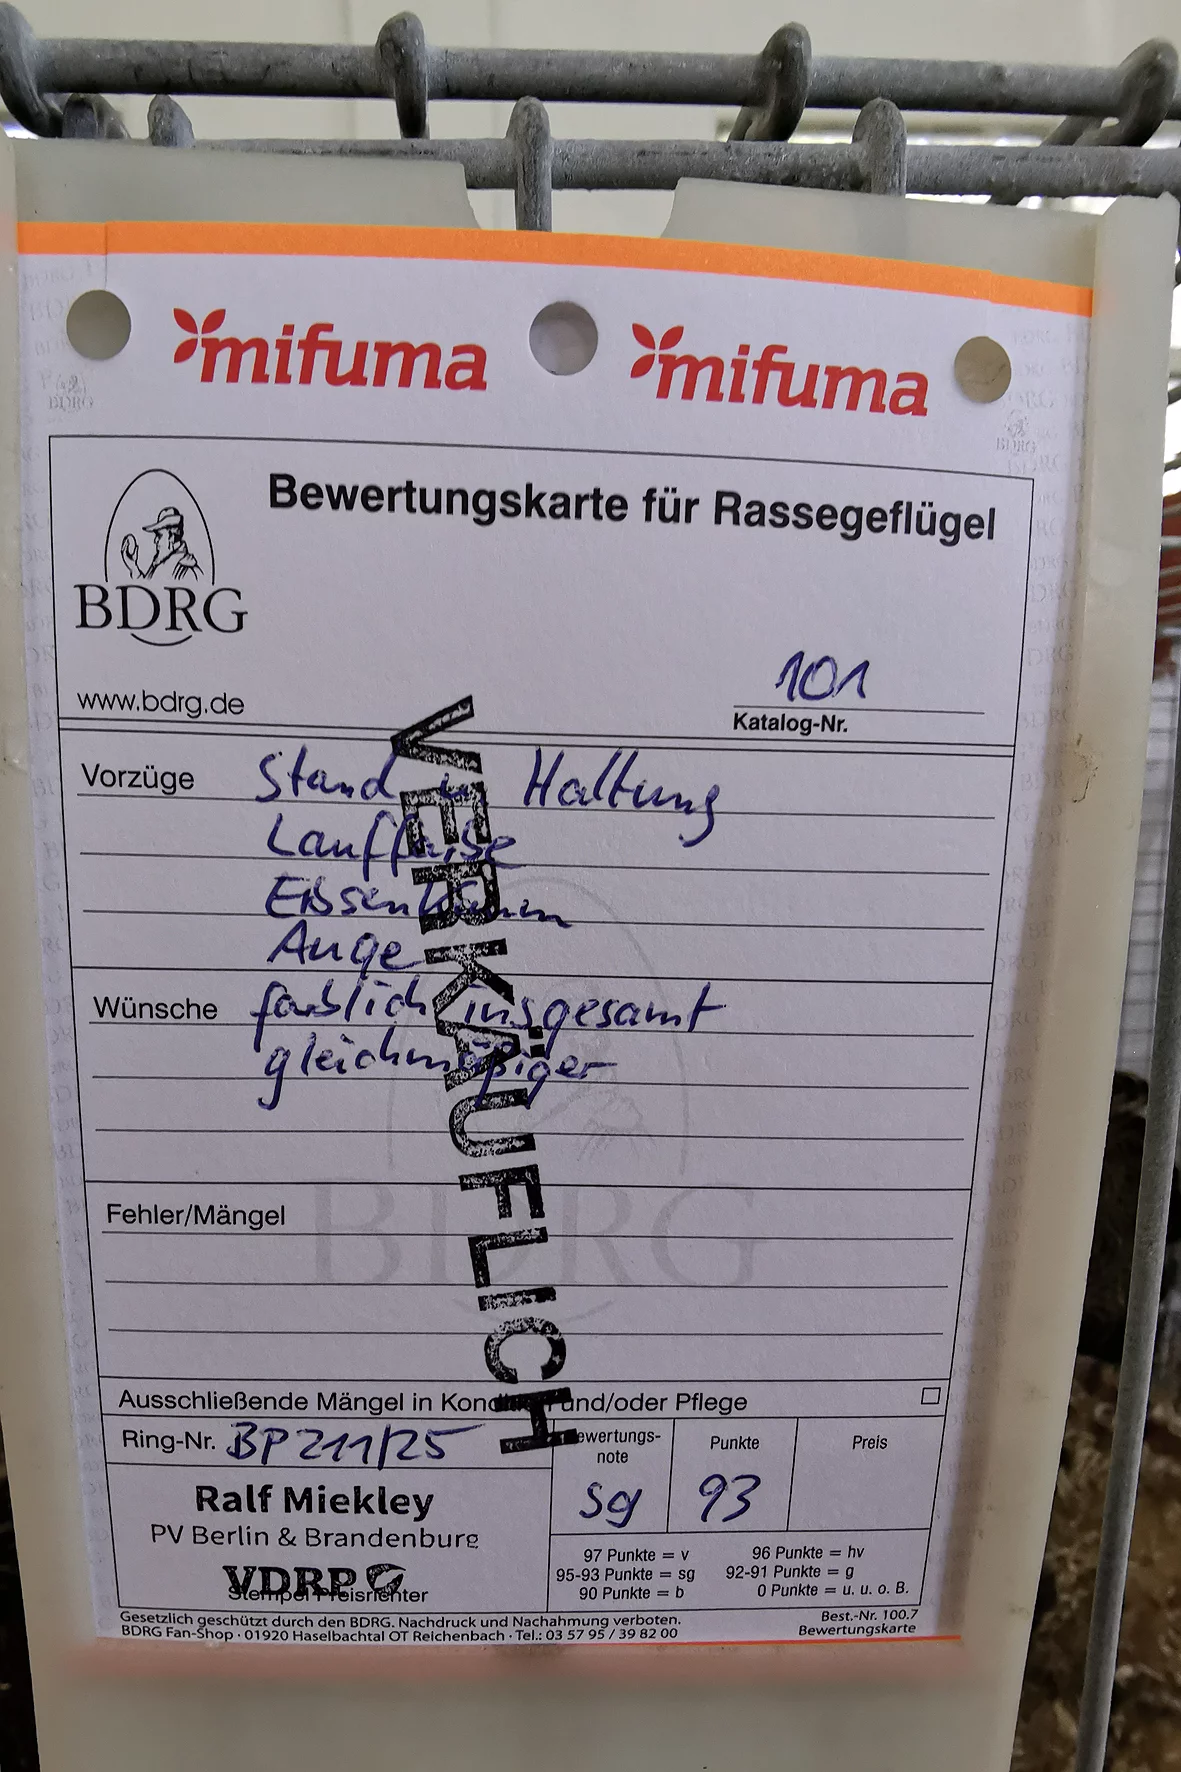 mifuma mifuma
Bewertungskarte für Rassegeflügel
BDRG
www.bdrg.de
101
Katalog-Nr.
Vorzüge Stand u. Haltung
Lauffarbe
Erbsenkamm
Auge
Wünsche farblich insgesamt
gleichmäßiger
VERKÄUFLICH
BDRG
Fehler/Mängel
Ausschließende Mängel in und/oder Pflege
Ring-Nr. BP 211/25
Bewertungs-
note
Punkte
Preis
sg
93
Ralf Miekley
PV Berlin & Brandenburg
VDRP
Stempel Preisrichter
97 Punkte = v 96 Punkte = hv
95-93 Punkte = sg 92-91 Punkte = g
90 Punkte = b 0 Punkte = u. u. o. B.
Gesetzlich geschützt durch den BDRG. Nachdruck und Nachahmung verboten.
BDRG Fan-Shop · 01920 Haselbachtal OT Reichenbach · Tel.: 03 57 95 / 39 82 00
Best.-Nr. 100.7
Bewertungskarte